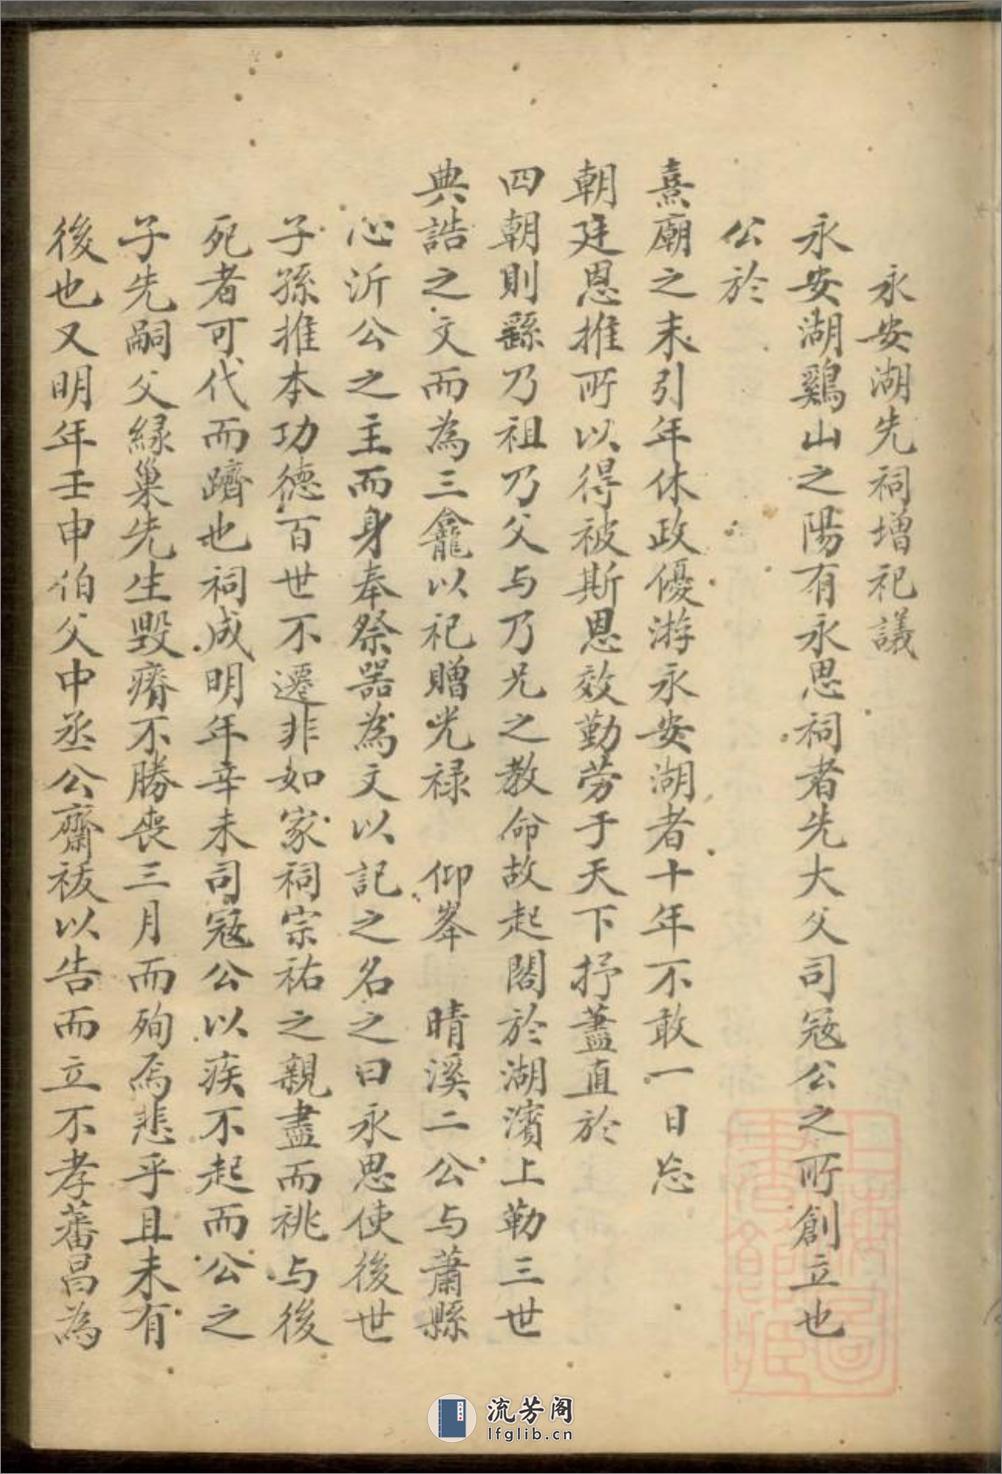 永安湖先祠增祀議
永安湖鷄山之陽有永思祠者先大父司寇公之所創立也
公於
熹廟之末引年休政優游永安湖者十年不敢一日忘
朝廷恩推所以得被斯恩效勤勞于天下抒藎直於
四朝則繇乃祖乃父与乃兄之教命故起閣於湖濱上勒三世
典誥之文而為三龕以祀贈光禄 仰峯 晴溪二公与蕭縣
心沂公之主而身奉祭器為文以記之名之曰永思使後世
子孫推本功德百世不遷非如家祠宗祐之親盡而祧与後
死者可代而躋也祠成明年辛未司寇公以疾不起而公之
子先嗣父緑巢先生毀瘠不勝喪三月而殉焉悲乎且未有
後也又明年壬申伯父中丞公齋祓以告而立不孝蕃昌為
流芳阁
lfglib.cn